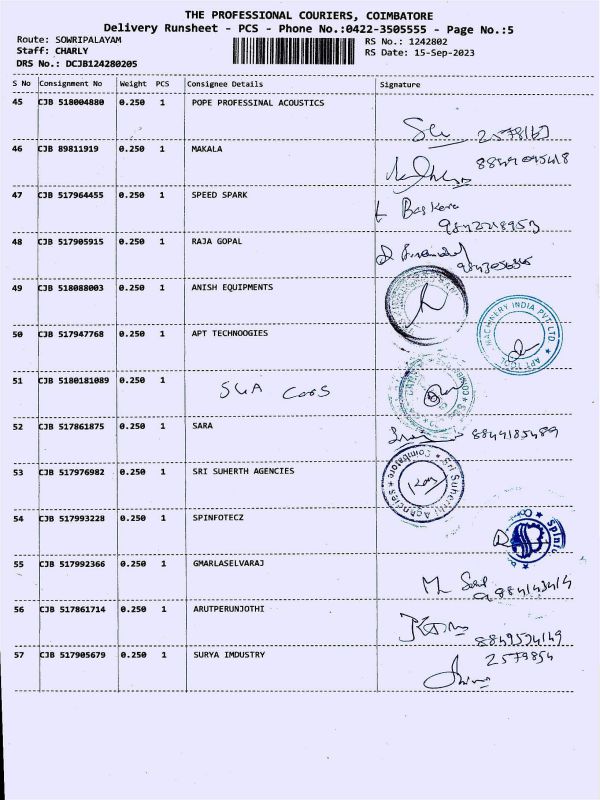 THE PROFESSIONAL COURIERS, COIMBATORE
Delivery Runsheet - PCS - Phone No.:0422-3505555 - Page No.:5
Route: SOWRIPALAYAM
RS No.: 1242802
Staff: CHARLY
RS Date: 15-Sep-2023
DRS No.: DCJB124280205
S No Consignment No Weight PCS Consignee Details Signature
45 CJB 518004880 0.250 1 POPE PROFESSINAL ACOUSTICS
46 CJB 89811919 0.250 1 MAKALA
47 CJB 517964455 0.250 1 SPEED SPARK
Baskara
9842218953
48 CJB 517905915 0.250 1 RAJA GOPAL
49 CJB 518088003 0.250 1 ANISH EQUIPMENTS
50 CJB 517947768 0.250 1 APT TECHNOOGIES
MACHINERY INDIA PVT LTD. ★ APT TOOL
51 CJB 5180181089 0.250 1
52 CJB 517861875 0.250 1 SARA
8844185489
53 CJB 517976982 0.250 1 SRI SUHERTH AGENCIES
Sri Suherth Agencies ★ Coimbatore ★
54 CJB 517993228 0.250 1 SPINFOTECZ
55 CJB 517992366 0.250 1 GMARLASELVARAJ
56 CJB 517861714 0.250 1 ARUTPERUNJOTHI
8849534149
57 CJB 517905679 0.250 1 SURYA IMDUSTRY
2579854